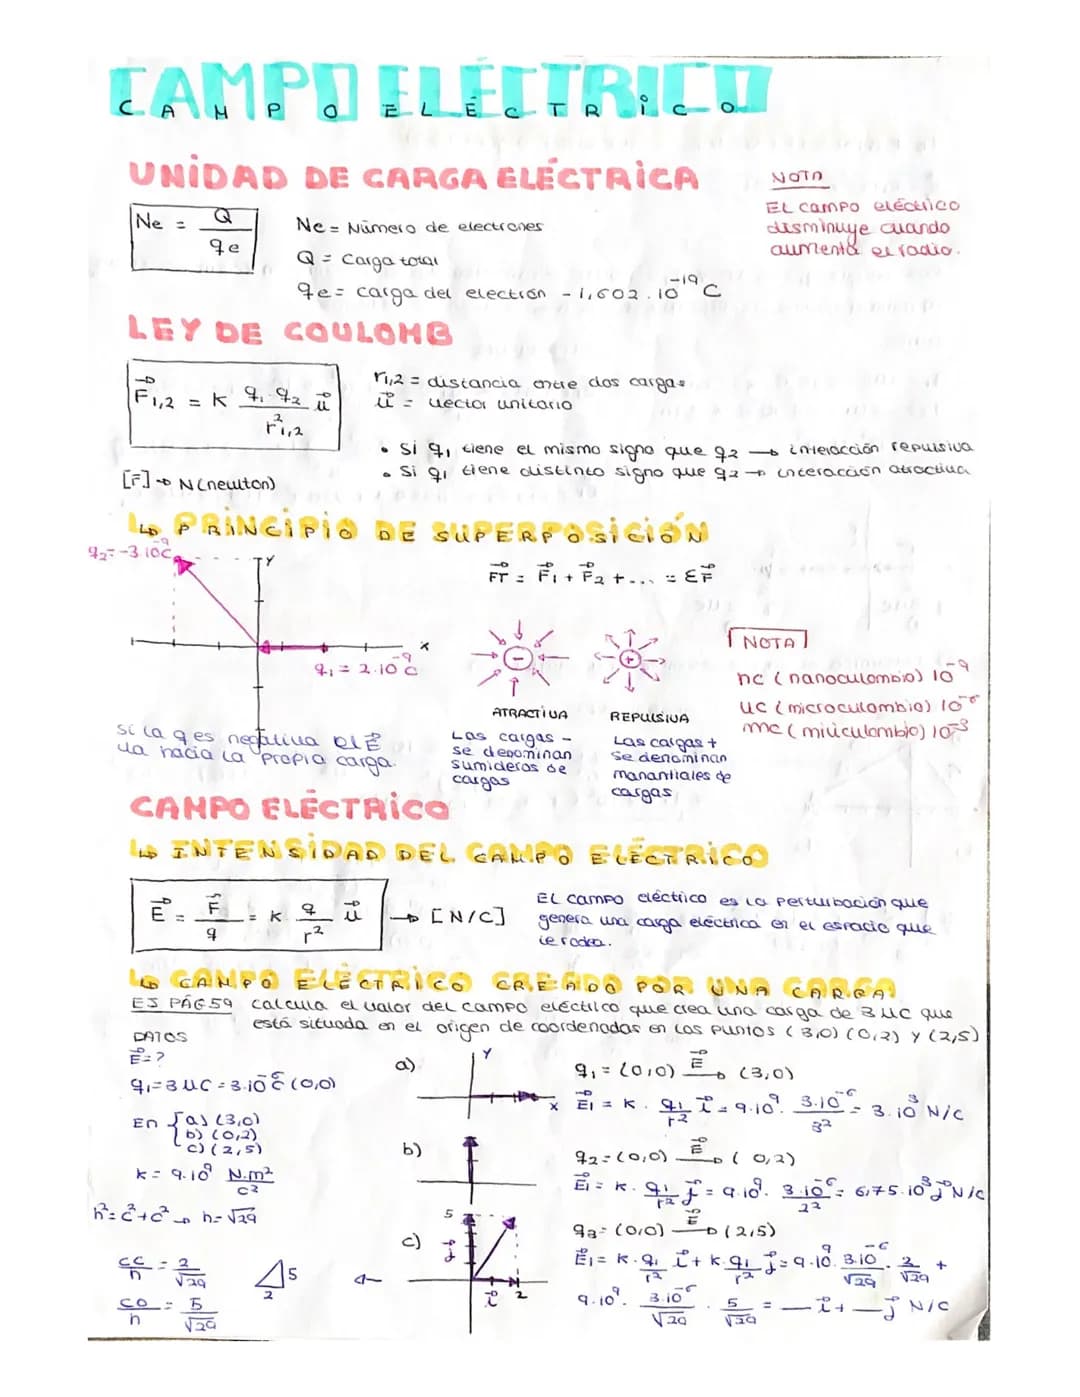 CAMPO ELÉCTRICO
CAMPO ELÉCTRICO
UNIDAD DE CARGA ELÉCTRICA
NOTA
El campo eléctrico
disminuye cuando
aumenta el radio.
Ne = Q / qe
Ne = Número de electrones
Q = Carga total
qe = carga del electrón - 1,602 . 10^-19 C
LEY DE COULOMB
F⃗1,2 = K q1 · q2 / r²1,2 u⃗
r1,2 = distancia entre dos cargas
u⃗ = vector unitario
• Si q1 tiene el mismo signo que q2 → interacción repulsiva
• Si q1 tiene distinto signo que q2 → interacción atractiva
[F] → N (newton)
↳ PRINCIPIO DE SUPERPOSICIÓN
q2 = -3.10^-9 C
Y
F⃗T = F⃗1 + F⃗2 + ... = ΣF⃗
X
q1 = 2.10^-9 C
ATRACTIVA
Las cargas -
se denominan
sumideros de
cargas
REPULSIVA
Las cargas +
se denominan
manantiales de
cargas
NOTA
nc (nanoculombio) 10^-9
uc (microculombio) 10^-6
mc (miliculombio) 10^-3
si la q es negativa el E⃗
va hacia la propia carga.
CAMPO ELÉCTRICO
↳ INTENSIDAD DEL CAMPO ELÉCTRICO
E⃗ = F⃗ / q = K · q / r² u⃗ → [N/C]
El campo eléctrico es la perturbación que
genera una carga eléctrica en el espacio que
le rodea.
↳ CAMPO ELÉCTRICO CREADO POR UNA CARGA
EJ PÁG 59 calcula el valor del campo eléctrico que crea una carga de 3 µC que
está situada en el origen de coordenadas en los puntos (3,0) (0,2) y (2,5)
DATOS
E⃗ = ?
q1 = 3 µC = 3.10^-6 C (0,0)
En { a) (3,0)
b) (0,2)
c) (2,5)
K = 9.10^9 N.m² / C²
h² = c² + c² → h = √29
cc / h = 2 / √29
co / h = 5 / √29
5
2
a)
Y
X
q1 = (0,0) E⃗→ (3,0)
E⃗1 = K · q1 / r² i⃗ = 9.10^9 · 3.10^-6 / 3² = 3.10^3 N/C
b)
q2 = (0,0) E⃗→ (0,2)
E⃗1 = K · q1 / r² j⃗ = 9.10^9 · 3.10^-6 / 2² = 6,75.10^3 j⃗ N/C
c)
5
j⃗
i⃗ 2
q3 = (0,0) E⃗→ (2,5)
E⃗1 = K · q1 / r² i⃗ + K · q1 / r² j⃗ = 9.10^9 · 3.10^-6 / √29 · 2 / √29 +
9.10^9 · 3.10^-6 / √29 · 5 / √29 = — i⃗ + — j⃗ N/C